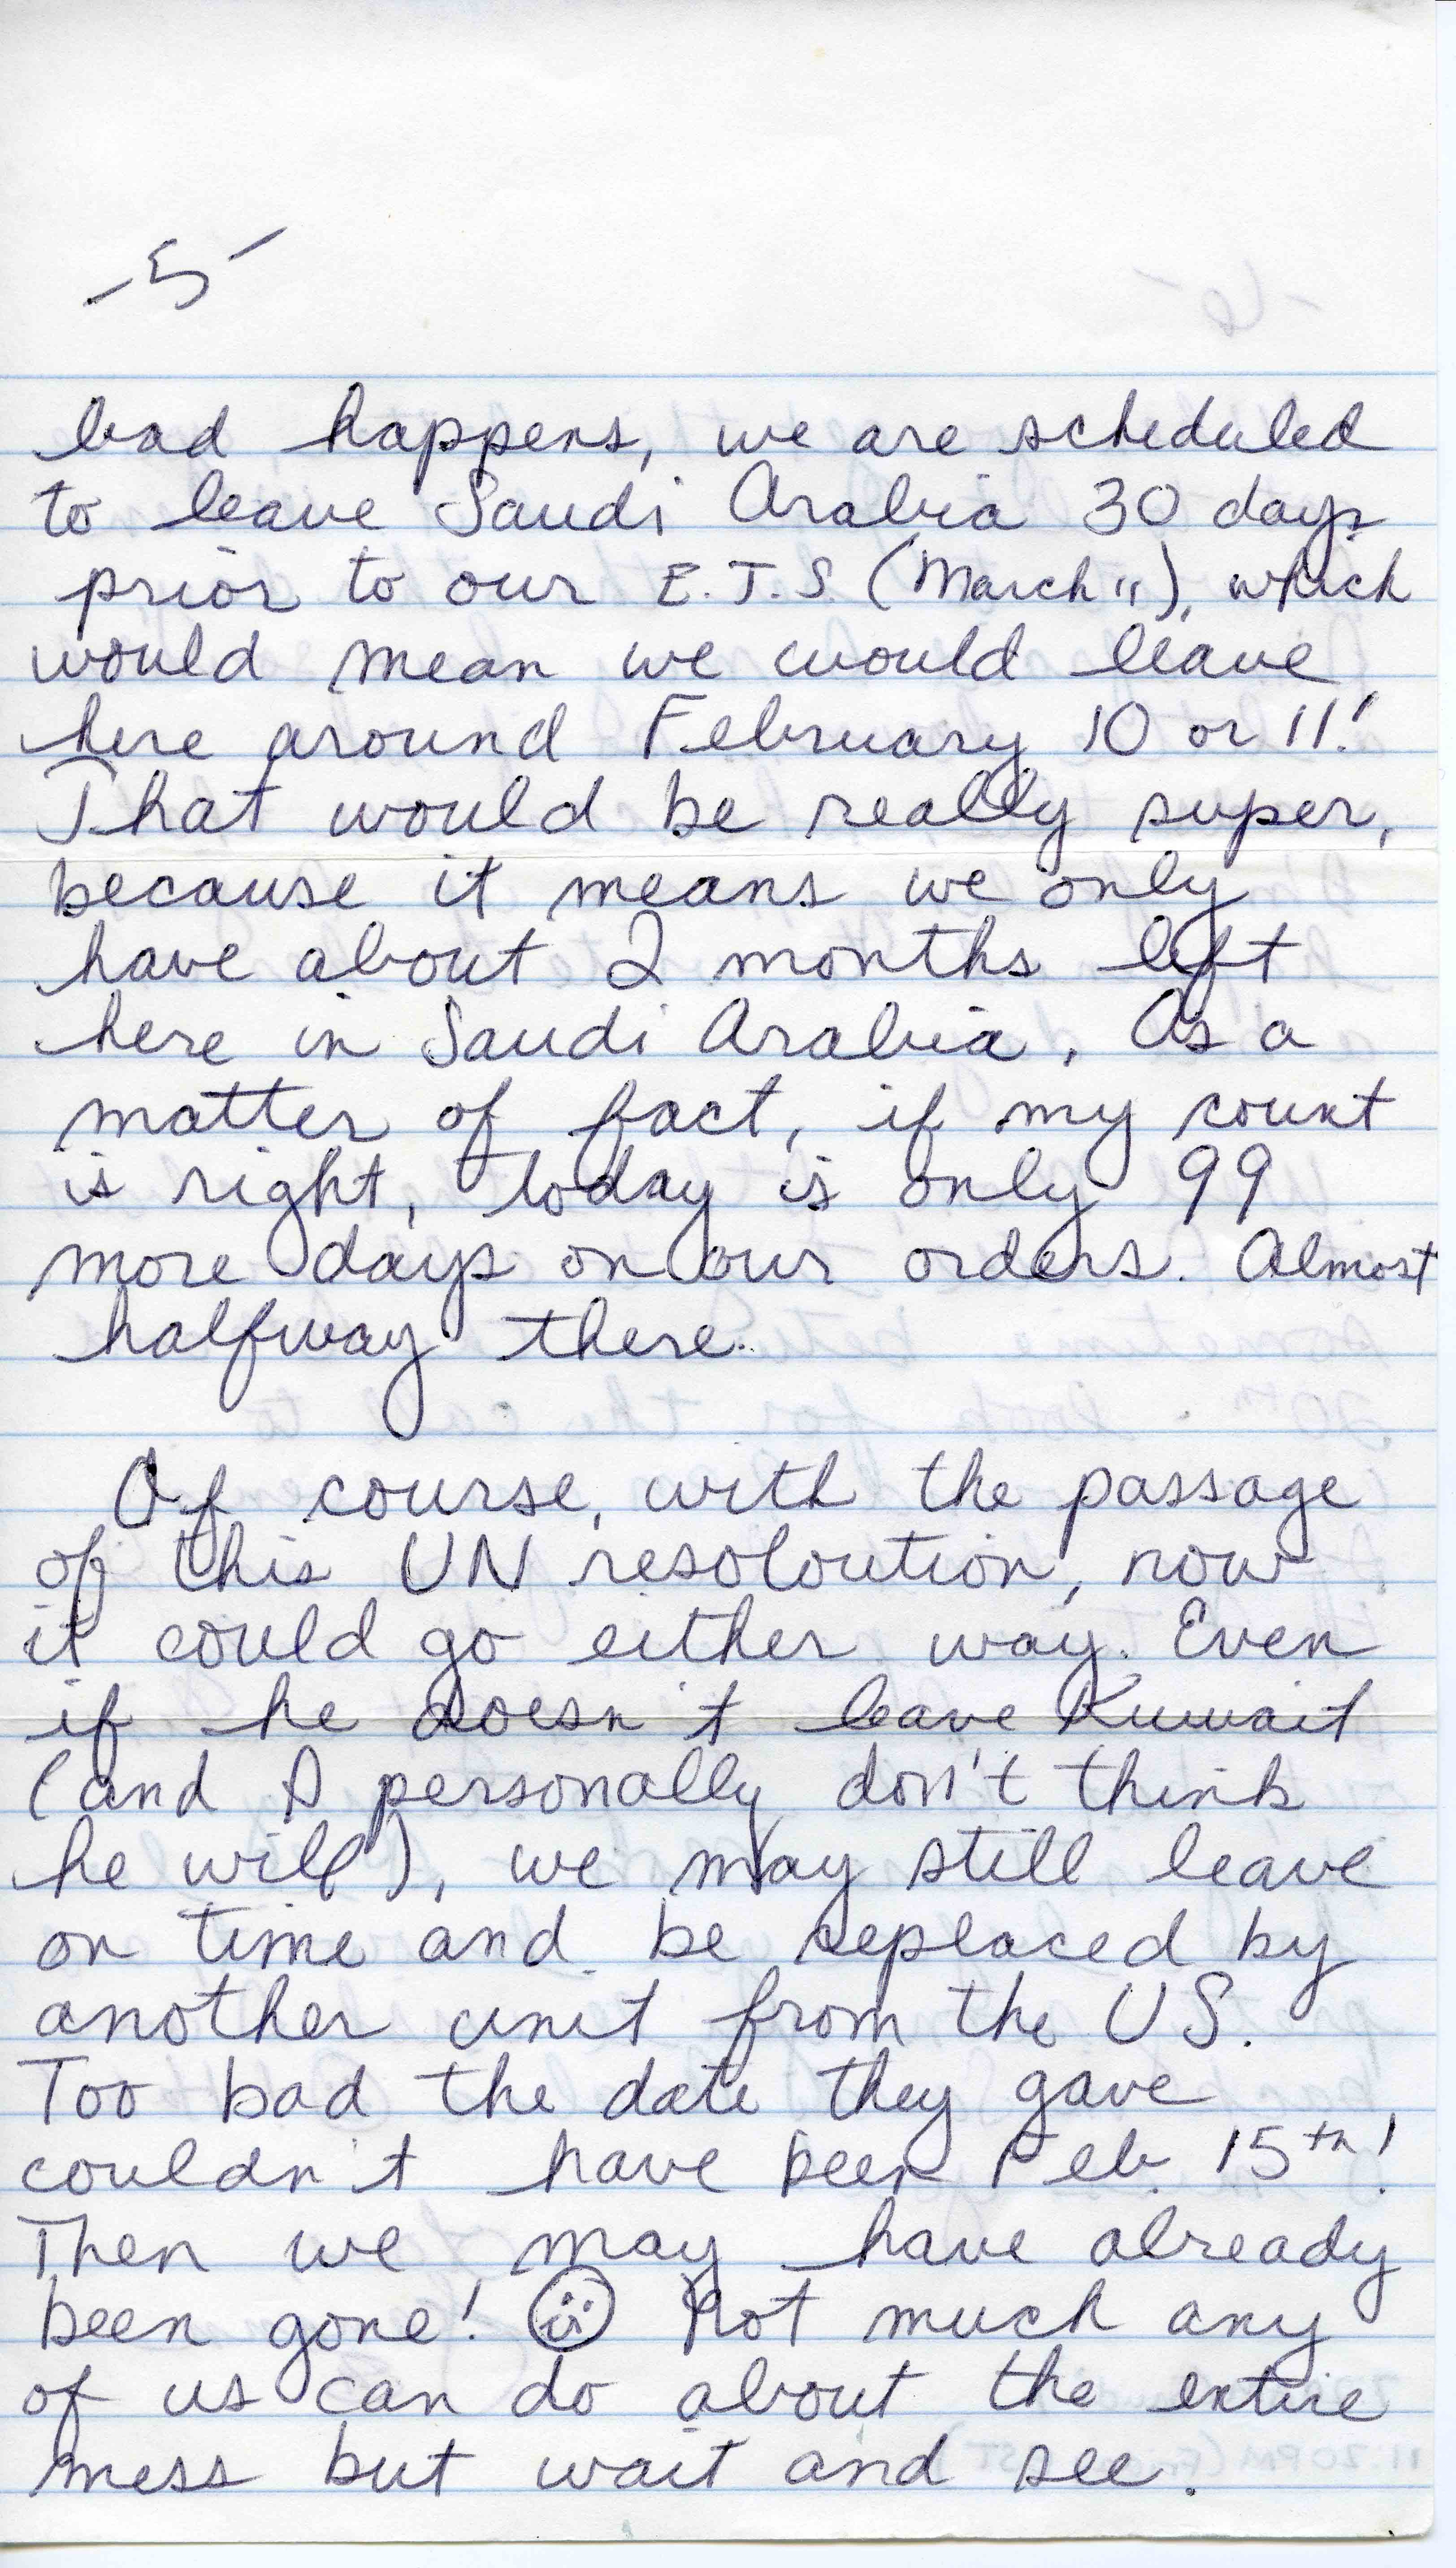 -5-
bad happens, we are scheduled
to leave Saudi Arabia 30 days
prior to our E.T.S. (March 11), which
would mean we would leave
here around February 10 or 11!
That would be really super,
because it means we only
have about 2 months left
here in Saudi Arabia. As a
matter of fact, if my count
is right, today is only 99
more days on our orders. Almost
halfway there.
Of course, with the passage
of this UN resoloution, now
it could go either way. Even
if he doesn't leave Kuwait
(and I personally don't think
he will), we may still leave
on time and be replaced by
another unit from the US.
Too bad the date they gave
couldn't have been Feb. 15th!
Then we may have already
been gone! Not much any
of us can do about the entire
mess but wait and see.